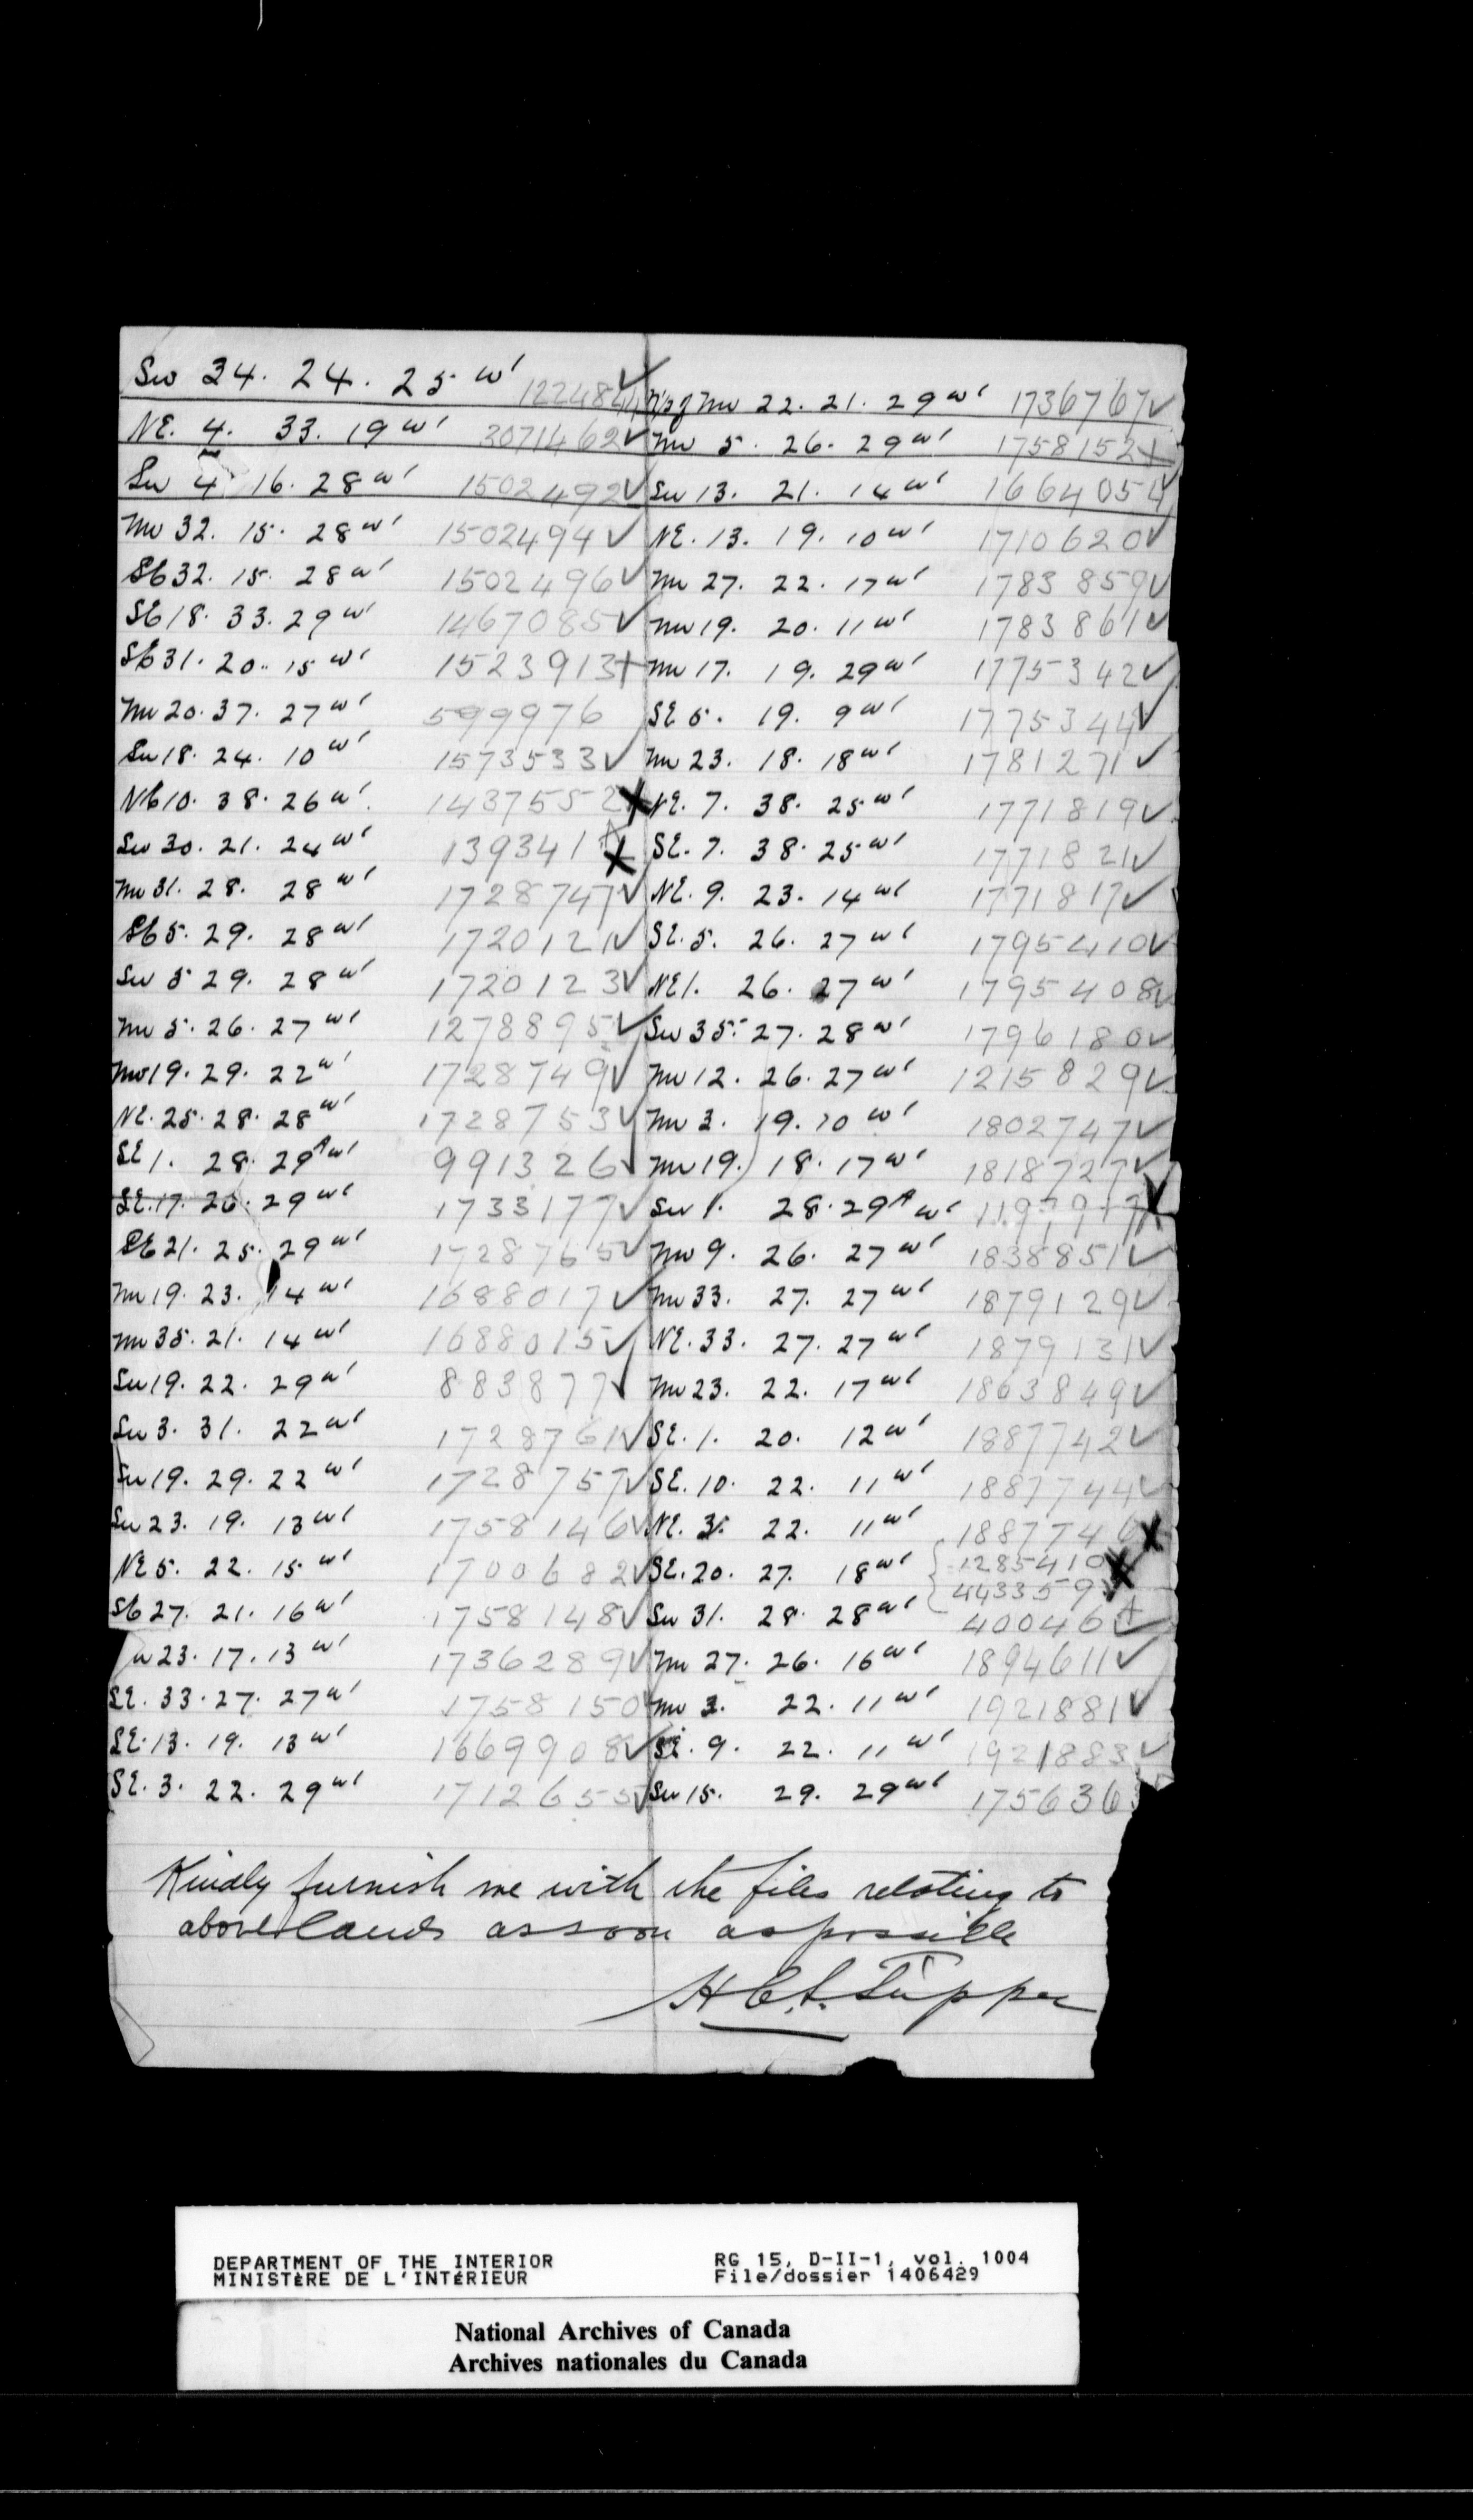 Sw 34. 24. 25 w' 122484 ✓
NE. 4. 33. 19 w' 3071462 ✓
Sw 4 16. 28 w' 1502492 ✓
Nw 32. 15. 28 w' 1502494 ✓
SE 32. 15. 28 w' 1502496 ✓
SE 18. 33. 29 w' 1467085 ✓
SE 31. 20. 15 w' 1523913 +
Nw 20. 37. 27 w' 599976
Sw 18. 24. 10 w' 1573533 ✓
NE 10. 38. 26 w' 1437552 X
Sw 30. 21. 24 w' 139341 X
Nw 31. 28. 28 w' 1728747 ✓
SE 5. 29. 28 w' 1720121 ✓
Sw 5 29. 28 w' 1720123 ✓
Nw 5. 26. 27 w' 1278895 ✓
Nw 19. 29. 22 w' 1728749 ✓
NE. 25. 28. 28 w' 1728753 ✓
SE 1. 28. 29A w' 991326 ✓
SE. 17. 26. 29 w' 1733177 ✓
SE 21. 25. 29 w' 1728765 ✓
Nw 19. 23. 14 w' 1688017 ✓
Nw 35. 21. 14 w' 1688015 ✓
Sw 19. 22. 29 w' 883877 ✓
Sw 3. 31. 22 w' 1728761 ✓
Sw 19. 29. 22 w' 1728757 ✓
Sw 23. 19. 13 w' 1758146 ✓
NE 5. 22. 15 w' 1700682 ✓
SE 27. 21. 16 w' 1758148 ✓
w 23. 17. 13 w' 1736289 ✓
SE. 33. 27. 27 w' 1758150
SE. 13. 19. 13 w' 1669908 ✓
SE. 3. 22. 29 w' 1712655 ✓
Nw 22. 21. 29 w' 1736767 ✓
Nw 5. 26. 29 w' 1758152 +
Sw 13. 21. 14 w' 1664054
NE. 13. 19. 10 w' 1710620 ✓
Nw 27. 22. 17 w' 1783859 ✓
Nw 19. 20. 11 w' 1783861 ✓
Nw 17. 19. 29 w' 1775342 ✓
SE 5. 19. 9 w' 1775344 ✓
Nw 23. 18. 18 w' 1781271 ✓
NE. 7. 38. 25 w' 1771819 ✓
SE. 7. 38. 25 w' 1771821 ✓
NE. 9. 23. 14 w' 1771817 ✓
SE. 5. 26. 27 w' 1795410 ✓
NE 1. 26. 27 w' 1795408 ✓
Sw 35. 27. 28 w' 1796180 ✓
Nw 12. 26. 27 w' 1215829 ✓
Nw 3. 19. 10 w' 1802747 ✓
Nw 19. 18. 17 w' 1818727 ✓
Sw 1. 28. 29A w'
Nw 9. 26. 27 w' 1838851 ✓
Nw 33. 27. 27 w' 1879129 ✓
NE. 33. 27. 27 w' 1879131 ✓
Nw 23. 22. 17 w' 1863849 ✓
SE. 1. 20. 12 w' 1887742 ✓
SE. 10. 22. 11 w' 1887744 ✓
NE. 3. 22. 11 w' 1887746 X
SE. 20. 27. 18 w' 1285410 X
443359
Sw 31. 28. 28 w' 40046 ✓
Nw 27. 26. 16 w' 1894611 ✓
Nw 3. 22. 11 w' 1921881 ✓
SE. 9. 22. 11 w' 1921883 ✓
Sw 15. 29. 29 w' 175636
Kindly furnish me with the files relating to
above lands as soon as possible
H C. L. Tupper
DEPARTMENT OF THE INTERIOR
MINISTÈRE DE L'INTÉRIEUR
RG 15, D-II-1, vol. 1004
File/dossier 1406429
National Archives of Canada
Archives nationales du Canada